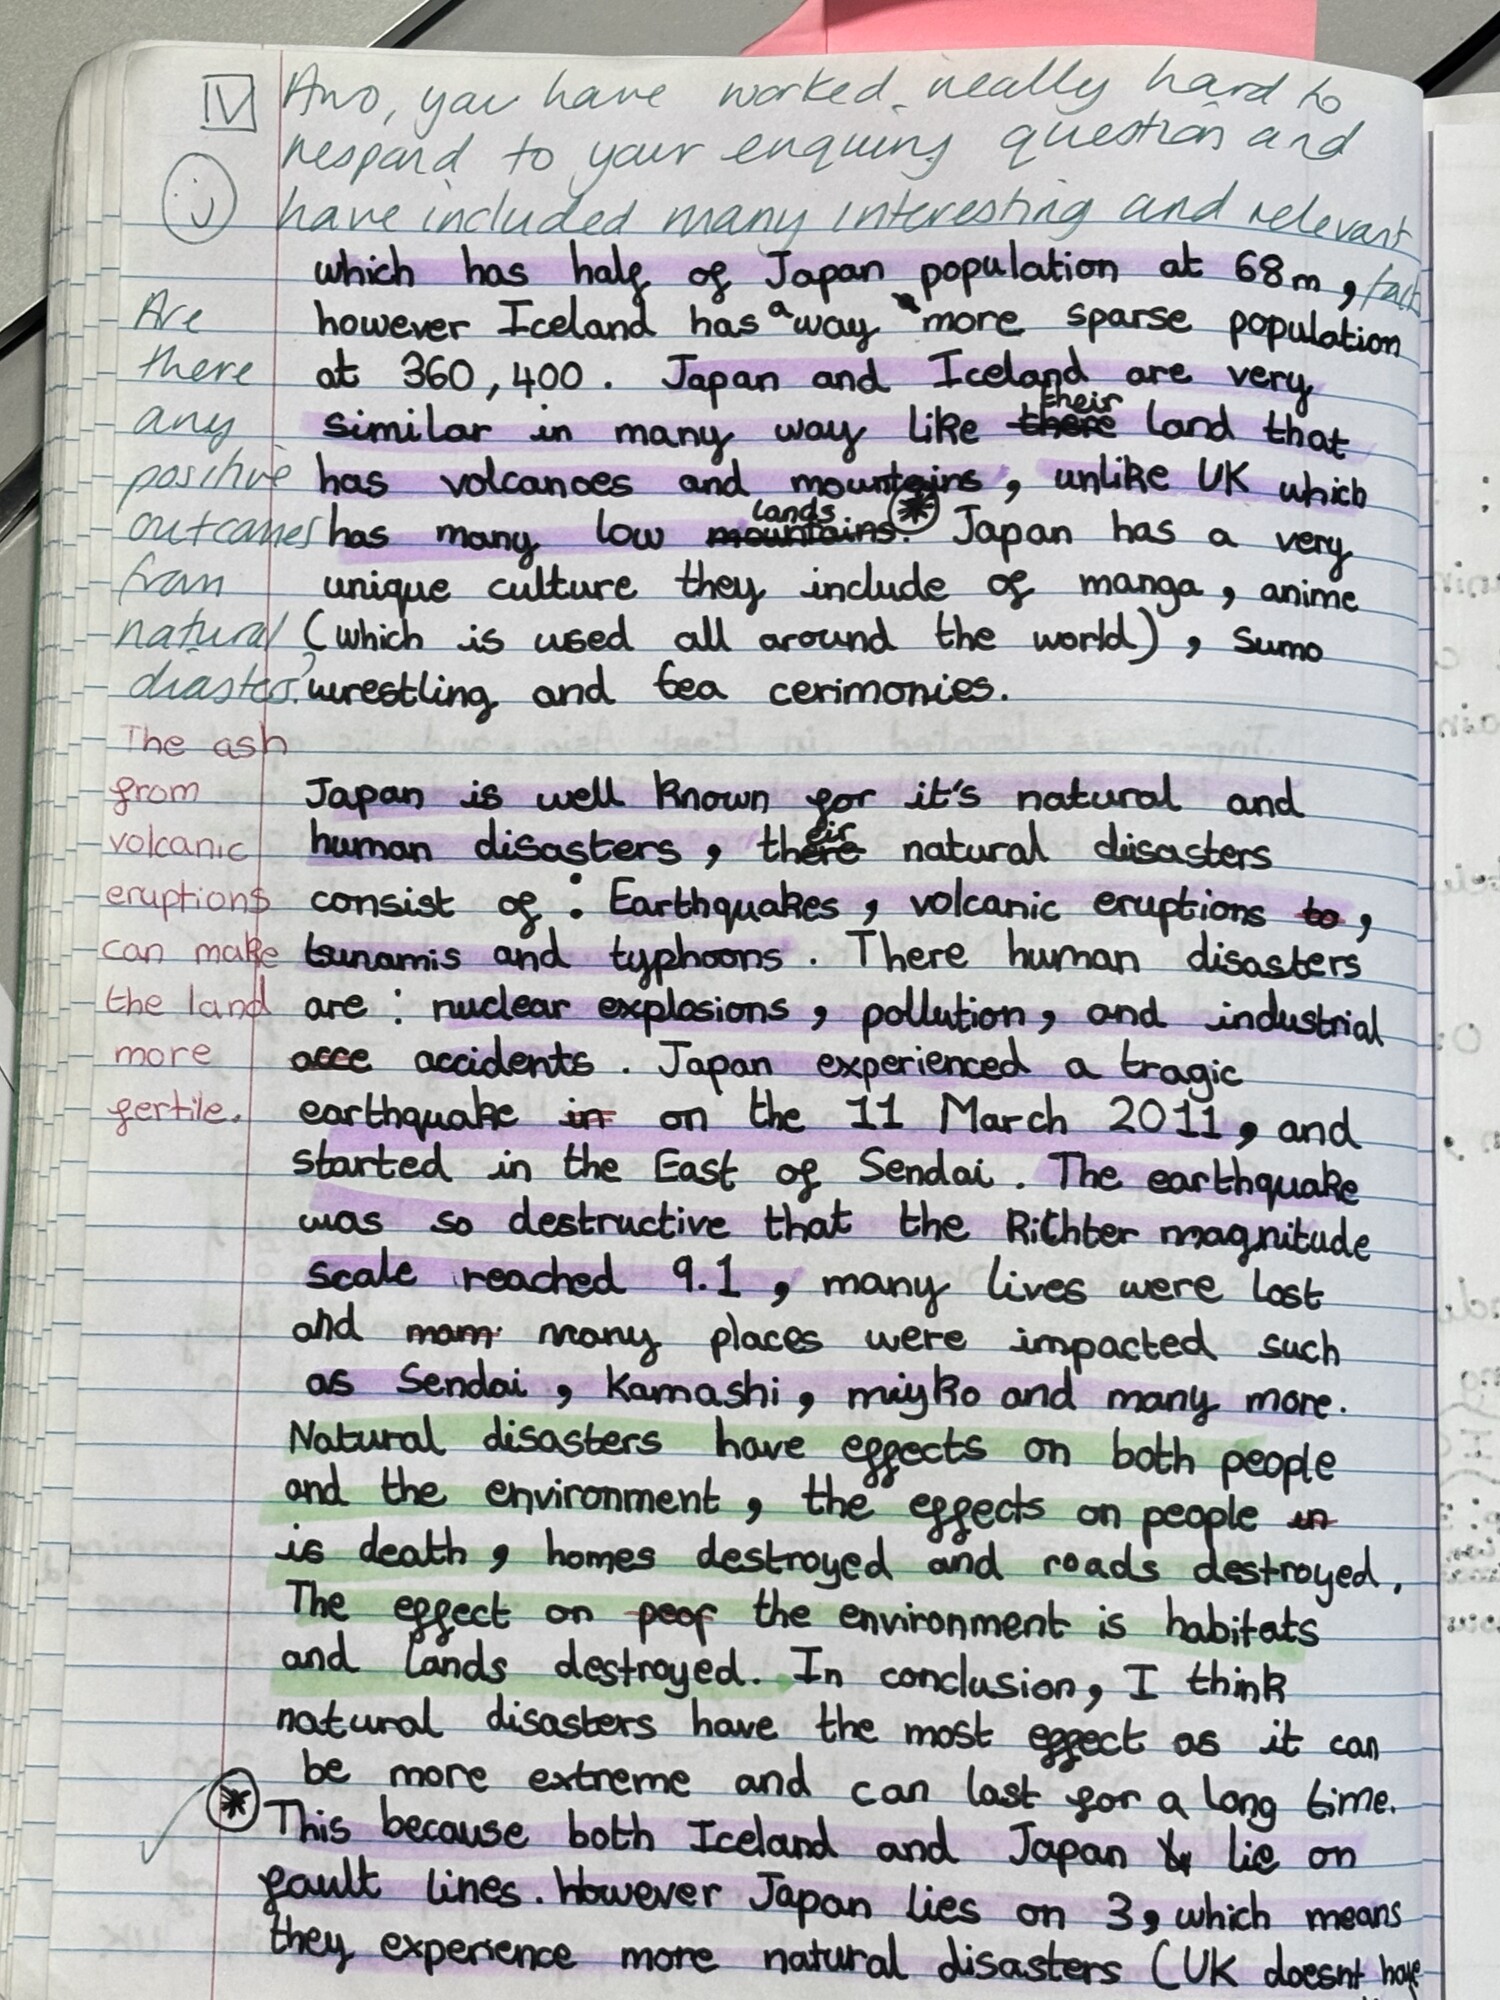 IV
Ano, you have worked really hard to
respond to your enquiry question and
have included many interesting and relevant
facts
which has half of Japan population at 68m,
however Iceland has a way more sparse population
at 360,400. Japan and Iceland are very
similar in many way like there their land that
has volcanoes and mountains, unlike UK which
has many low mountains. lands * Japan has a very
unique culture they include of manga, anime
(which is used all around the world), sumo
wrestling and tea cerimonies.
Are
there
any
positive
outcomes
from
natural
disasters?
The ash
from
volcanic
eruptions
can make
the land
more
fertile.
Japan is well known for it's natural and
human disasters, there their natural disasters
consist of: Earthquakes, volcanic eruptions to,
tsunamis and typhoons. There human disasters
are: nuclear explosions, pollution, and industrial
acce accidents. Japan experienced a tragic
earthquake in on the 11 March 2011, and
started in the East of Sendai. The earthquake
was so destructive that the Richter magnitude
scale reached 9.1, many lives were lost
and mam many places were impacted such
as Sendai, Kamashi, miyko and many more.
Natural disasters have effects on both people
and the environment, the effects on people in
is death, homes destroyed and roads destroyed.
The effect on peop the environment is habitats
and lands destroyed. In conclusion, I think
natural disasters have the most effect as it can
be more extreme and can last for a long time.
* This because both Iceland and Japan lie on
fault lines. However Japan lies on 3, which means
they experience more natural disasters (UK doesnt have